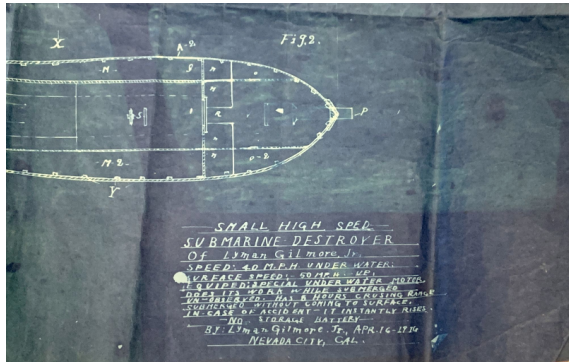 Fig. 2.
X
A-2
M
S
P
M-2
O-2
Y
SMALL HIGH SPED
SUBMARINE DESTROYER
Of Lyman Gilmore Jr.
SPEED: 40 M.P.H UNDER WATER:
SURFACE SPEED: 50 M.P.H. UP,
EQUIPED; SPECIAL UNDER WATER MOTOR
DOES ITS WORK WHILE SUBMERGED
UN-OBSERVED: HAS 8 HOURS CRUSING RANGE
SUBMERGED WITHOUT COMING TO SURFACE.
IN CASE OF ACCIDENT IT INSTANTLY RISES.
NO STORAGE BATTERY
BY: Lyman Gilmore Jr., APR. 16-1914
NEVADA CITY, CAL.